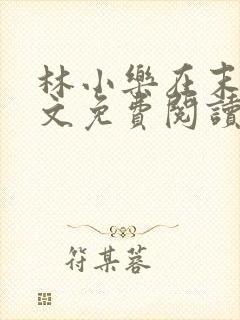 林小樂在末
文免費閱讀
符某蓉